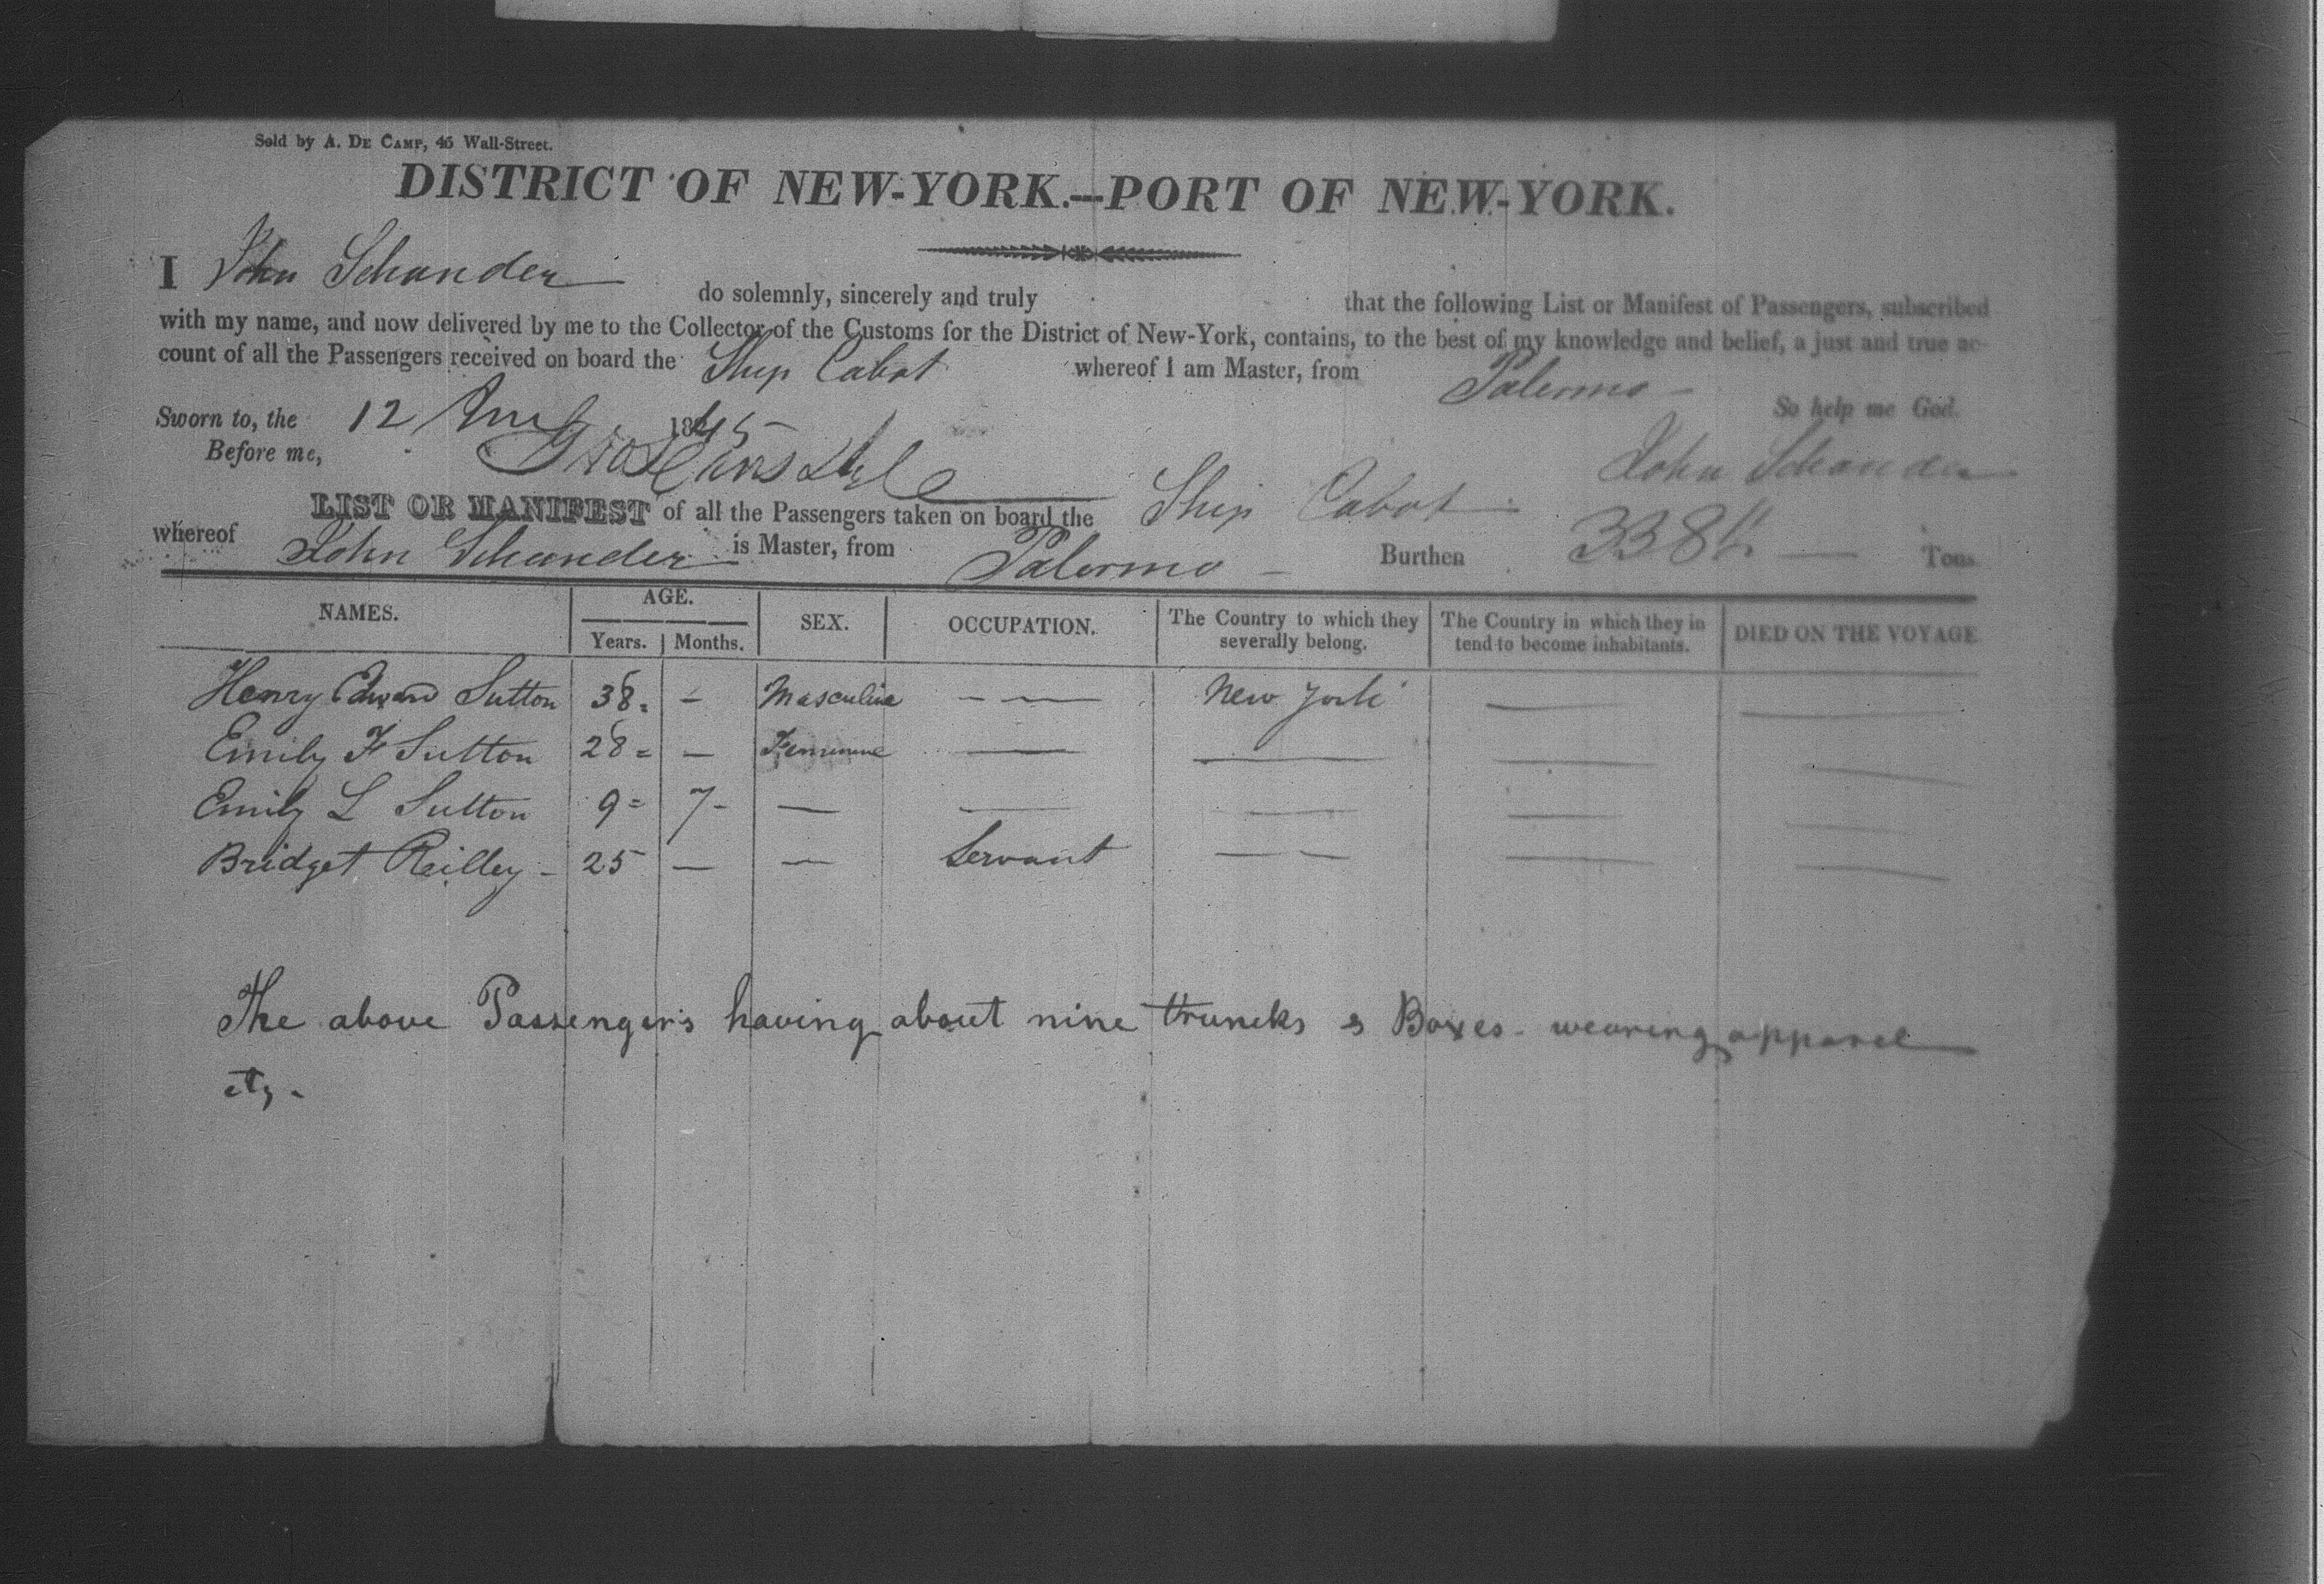 Sold by A. DE CAMP, 45 Wall-Street.
DISTRICT OF NEW-YORK.—PORT OF NEW-YORK.
I John Schander do solemnly, sincerely and truly that the following List or Manifest of Passengers, subscribed
with my name, and now delivered by me to the Collector of the Customs for the District of New-York, contains, to the best of my knowledge and belief, a just and true ac-
count of all the Passengers received on board the Ship Cabot whereof I am Master, from Palermo —
So help me God.
Sworn to, the 12 1845
Before me,
John Schander
LIST OR MANIFEST of all the Passengers taken on board the Ship Cabot
whereof John Schander is Master, from Palermo — Burthen 338 Tons
NAMES. AGE. SEX. OCCUPATION. The Country to which they severally belong. The Country in which they in tend to become inhabitants. DIED ON THE VOYAGE
Years. Months.
Henry Edward Sutton 38 - Masculine — — New York — —
Emily F Sutton 28 - — Feminine — — — —
Emily L Sutton 9 - 7 - — — — — —
Bridget Reilley - 25 — — Servant — — — —
The above Passengers having about nine truncks & Boxes - wearing apparel
etc -